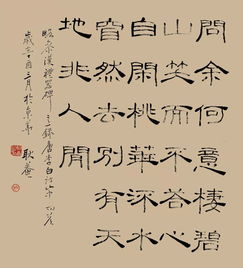 問余何意棲碧
山笑而不答心
自閑桃華流水
窅然去別有天
地非人間
漢禮器碑 錄唐李白詩
三月於京華